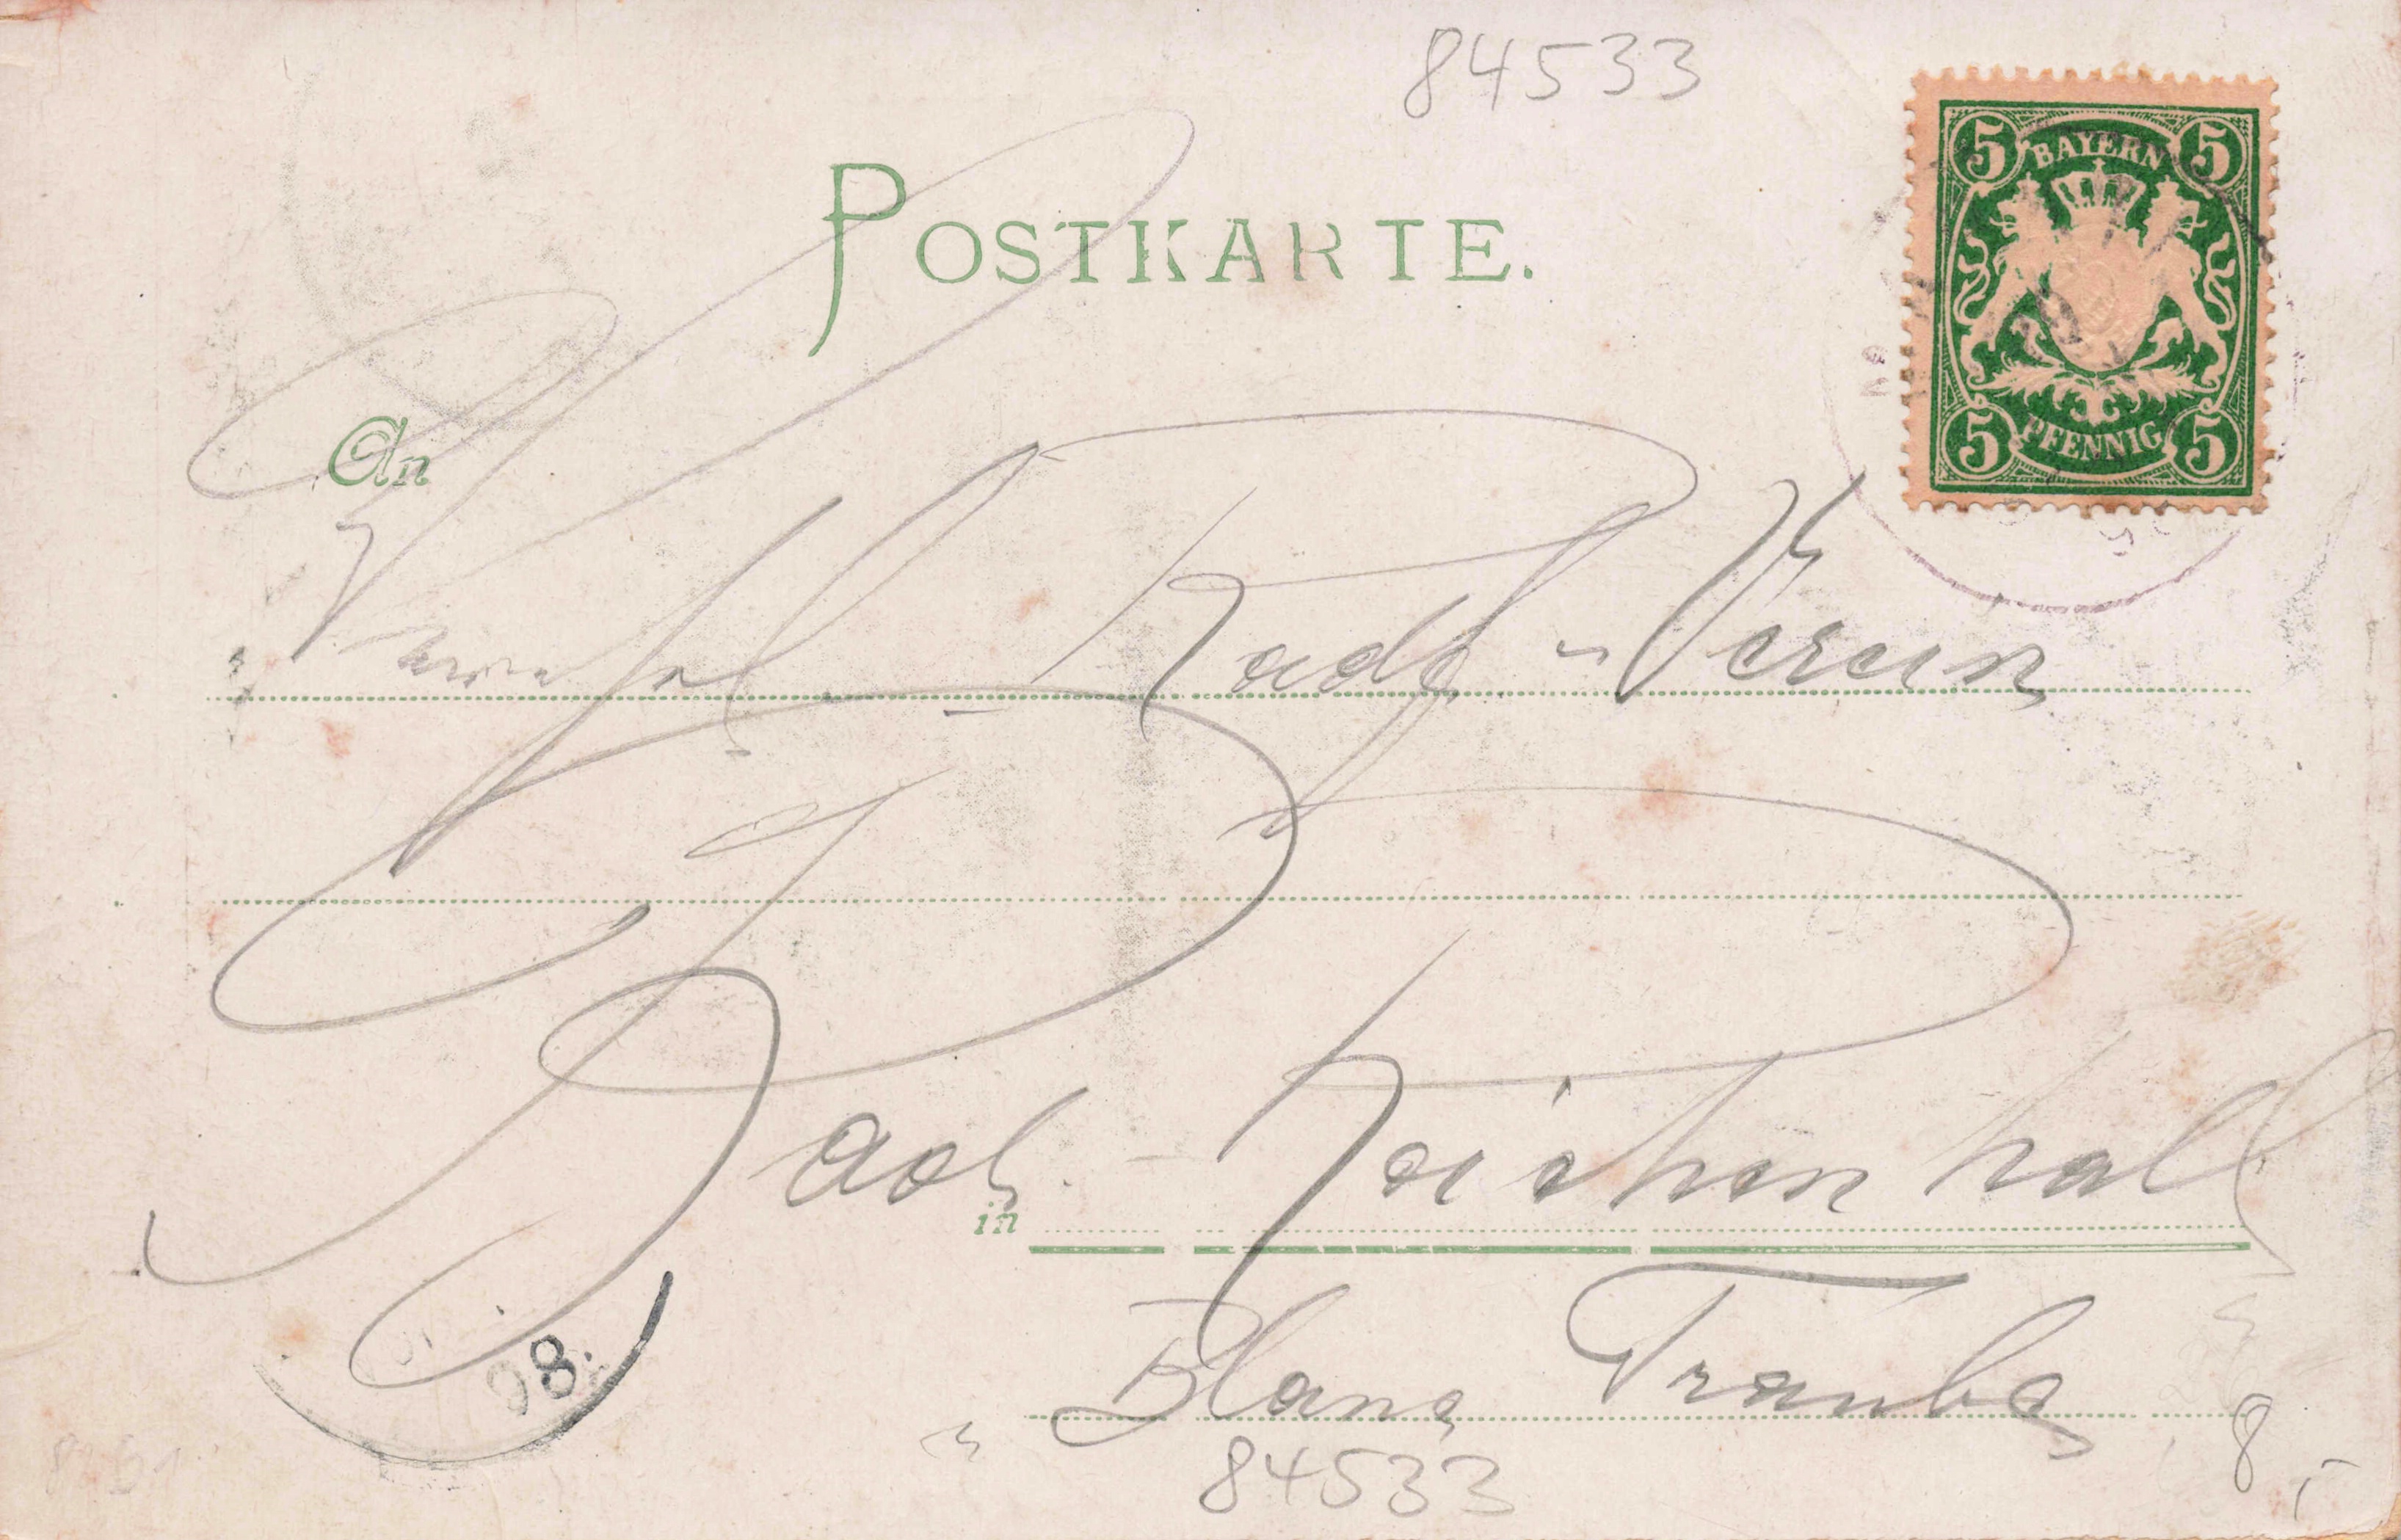 84533
POSTKARTE.
5 BAYERN 5
5 PFENNIG 5
An
Radf.-Verein
Bad-Reichenhall
in
Blaue Traube
98.
84533
8,-